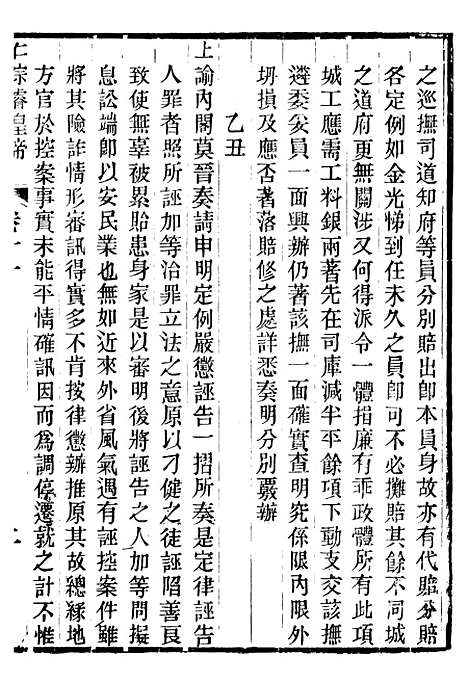 之巡撫司道知府等員分別賠出卽本員身故亦有代賠分賠
各定例如金光悌到任未久之員卽可不必攤賠其餘不同城
之道府更無關涉又何得派令一體捐廉有乖政體所有此項
城工應需工料銀兩著先在司庫減半平餘項下動支交該撫
遴委妥員一面興辦仍著該撫一面確實查明究係限內限外
坍損及應否著落賠修之處詳悉奏明分別覈辦
乙丑
上諭內閣莫晉奏請申明定例嚴懲誣告一摺所奏是定律誣告
人罪者照所誣加等治罪立法之意原以刁健之徒誣陷善良
致使無辜被累貽患身家是以審明後將誣告之人加等問擬
息訟端卽以安民業也無如近來外省風氣遇有誣控案件雖
將其險詐情形審訊得實多不肯按律懲辦推原其故總緣地
方官於控案事實未能平情確訊因而爲調停遷就之計不惟
仁宗睿皇帝 卷十一 七